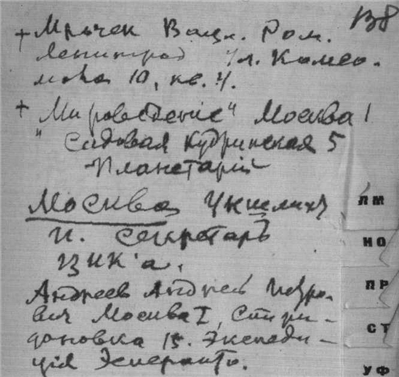 138
+ Мрочек Вацл. Ром.
Ленинград ул. Комсо-
мола 10, кв. 4.
+ "Мироведение" Москва 1
" Садовая Кудринская 5
Планетарій
Москва
и. секретарь
ЦИК'а.
Андреев Андрей Петро-
вич Москва I, Спири-
доновка 15. Экспеди-
ція Эсперанто.
ЛМ
НО
ПР
СТ
УФ